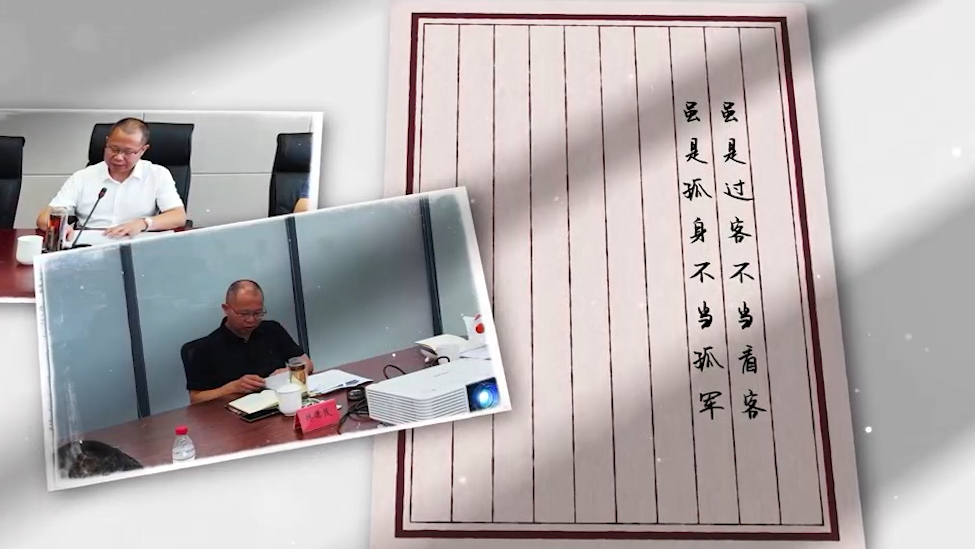 虽是过客不当看客
虽是孤身不当孤军